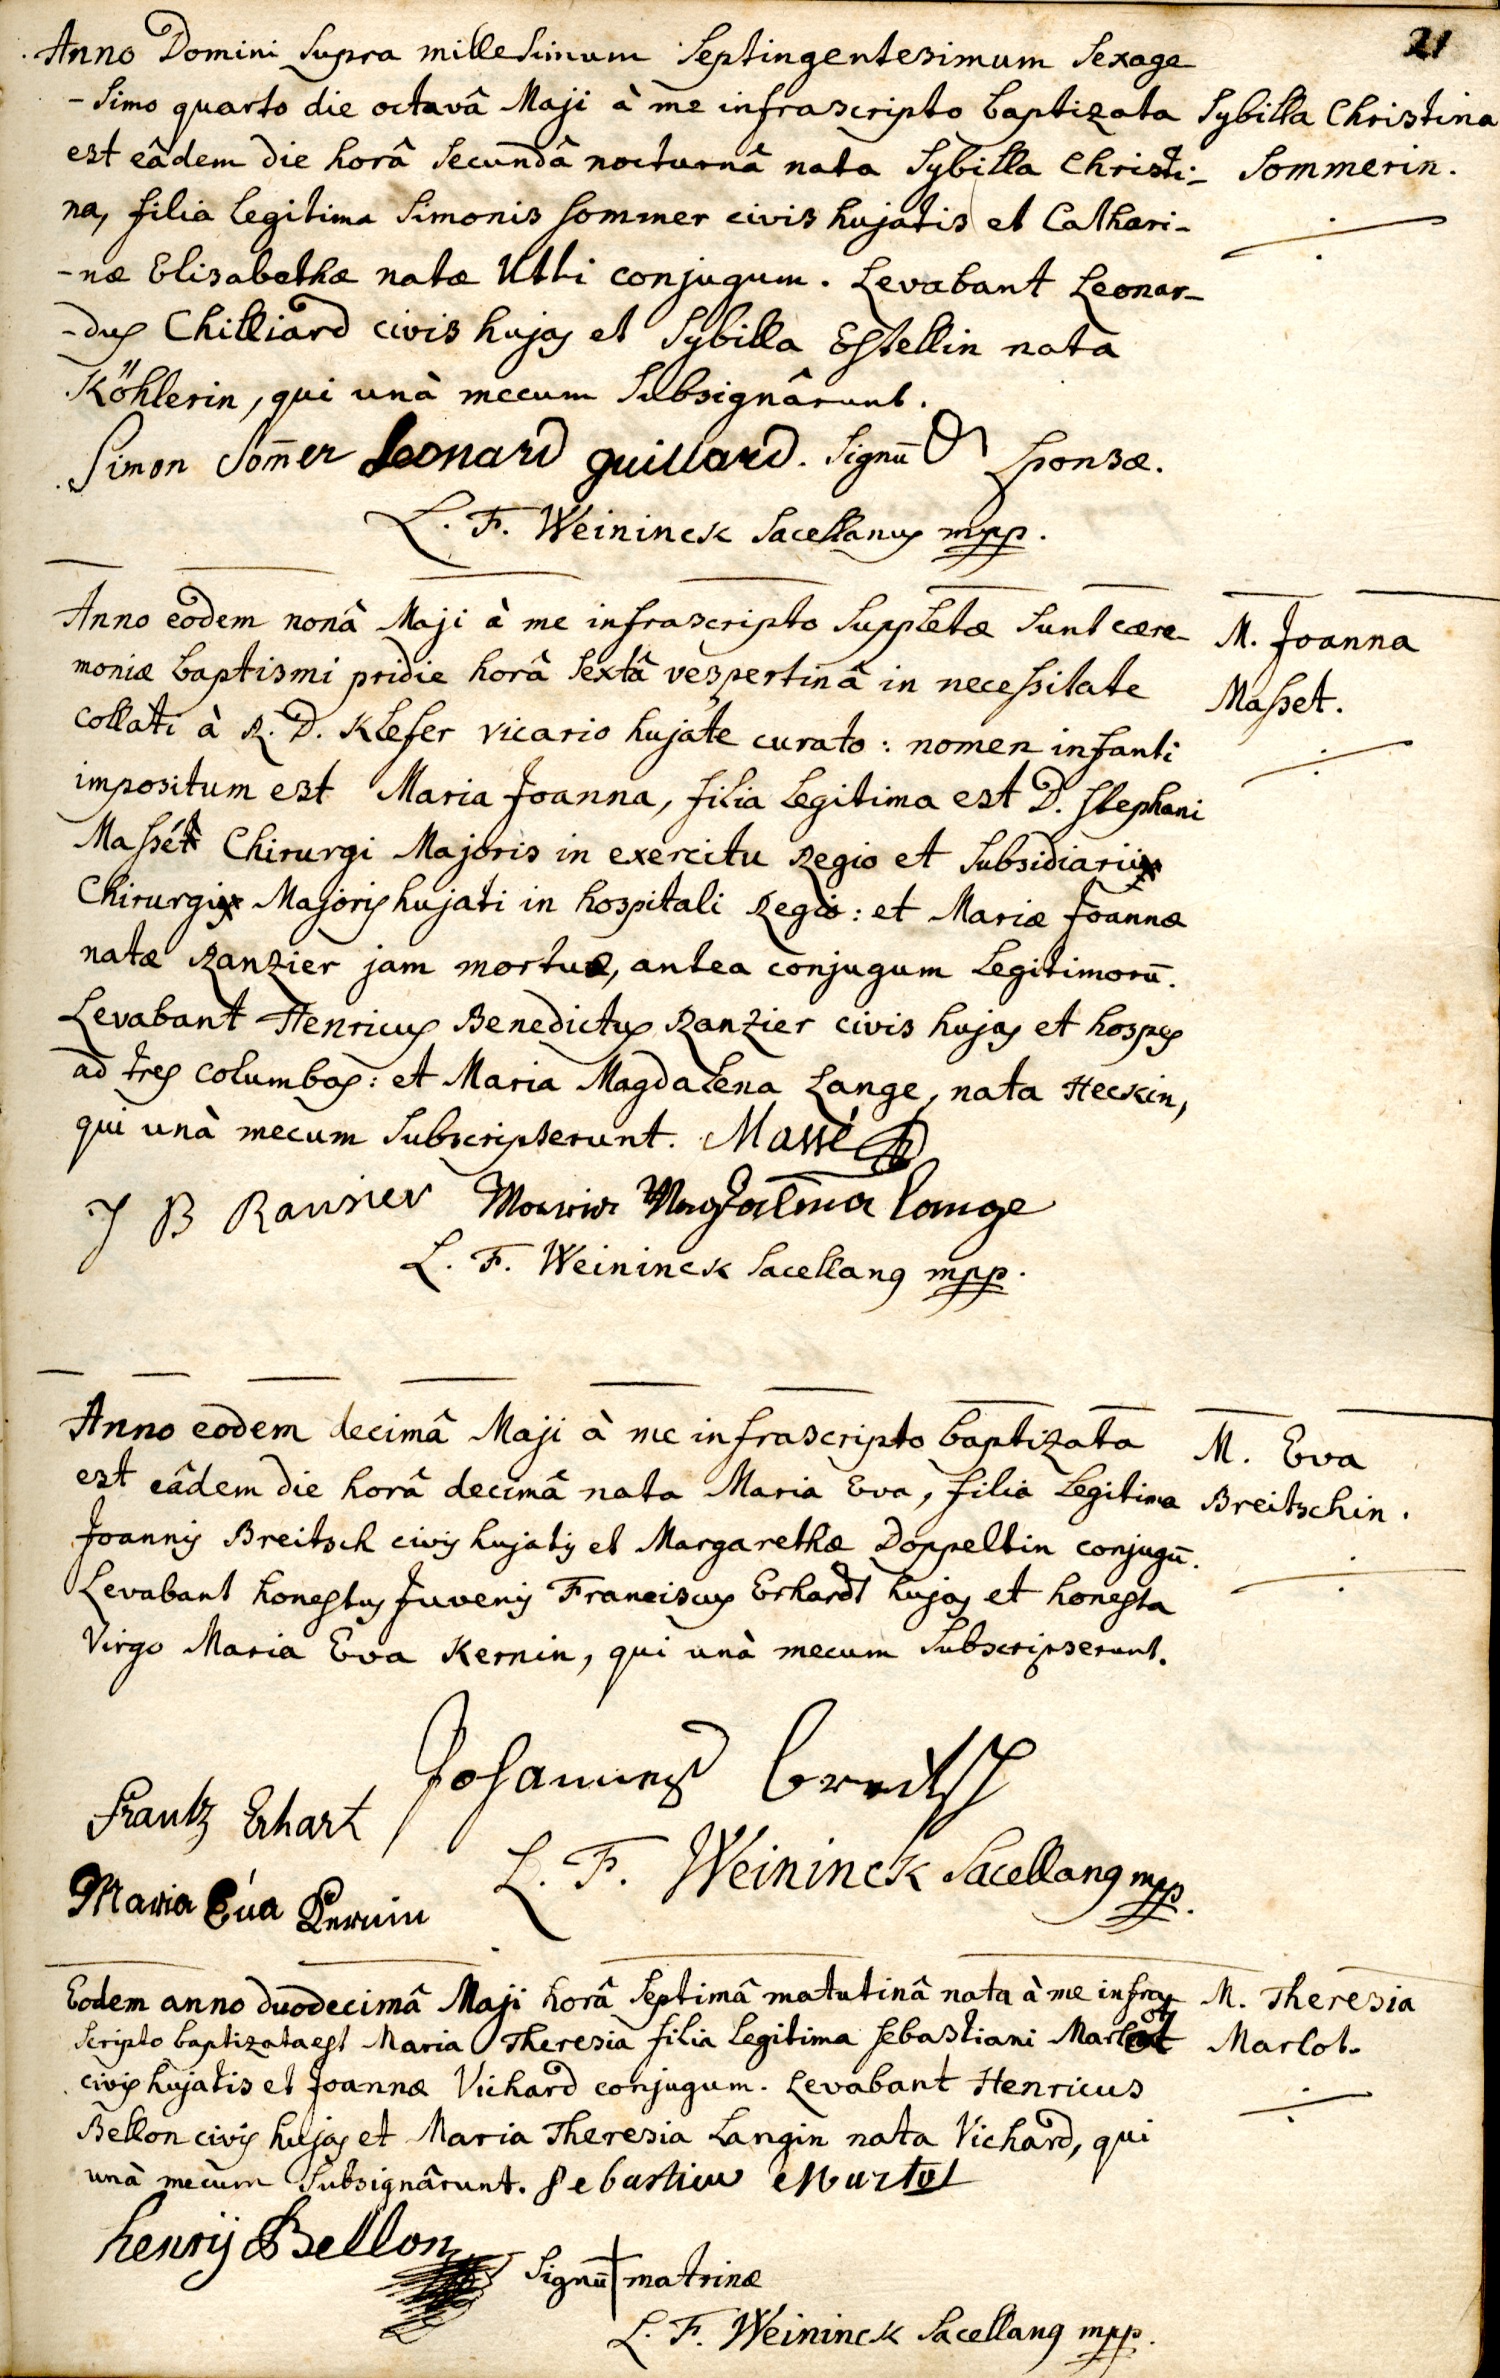 21
Anno Domini supra millesimum septingentesimum sexage-
-simo quarto die octavâ Maji à me infrascripto baptizata
est eâdem die horâ secundâ nocturnâ nata Sybilla Christi-
na, filia legitima Simonis Sommer civis hujatis et Cathari-
-næ Elisabethæ natæ Utti conjugum. Levabant Leonar-
-dus Chilliard civis hujas et Sybilla Estellin nata
Köhlerin, qui unà mecum subsignârunt.
Simon Som̄er Leonard guillard. Signū Sponsæ.
L. F. Weininck Sacellanus mpp.
Sybilla Christina
Sommerin.
Anno eodem nonâ Maji à me infrascripto suppletæ sunt cære-
moniæ baptismi pridie horâ sextâ vespertinâ in necessitate
collati à R. D. Klefer vicario hujate curato: nomen infanti
impositum est Maria Joanna, filia legitima est D. Stephani
Massét Chirurgi Majoris in exercitu Regio et subsidiarii
Chirurgi Majoris hujati in hospitali Regio: et Mariæ Joannæ
natæ Ranzier jam mortuæ, antea conjugum legitimorū.
Levabant Henricus Benedictus Ranzier civis hujas et hospes
ad tres columbas: et Maria Magdalena Lange, nata Heckin,
qui unà mecum subscripserunt. Massé
J B Ranzier Maria Magdalena Lange
L. F. Weininck Sacellanus mpp.
M. Joanna
Masset.
Anno eodem decimâ Maji à me infrascripto baptizata
est eâdem die horâ decimâ nata Maria Eva, filia legitima
Joannis Breitsch civis hujatis et Margarethæ Doppeltin conjugū.
Levabant honestus Juvenis Franciscus Erhardt hujas et honesta
Virgo Maria Eva Kernin, qui unà mecum subscripserunt.
Johannes breitsch
Frantz Erhart
L. F. Weininck Sacellanus mpp.
Maria Eúa Kernin
M. Eva
Breitschin.
Eodem anno duodecimâ Maji horâ septimâ matutinâ nata à me infra-
scripto baptizata est Maria Theresia filia legitima Sebastiani Marlot
civis hujatis et Joannæ Vichard conjugum. Levabant Henricus
Bellon civis hujas et Maria Theresia Langin nata Vichard, qui
unà mecum subsignârunt. Sebastien Marlot
henrij Bellon
Signū matrinæ
L. F. Weininck Sacellanus mpp.
M. Theresia
Marlot.